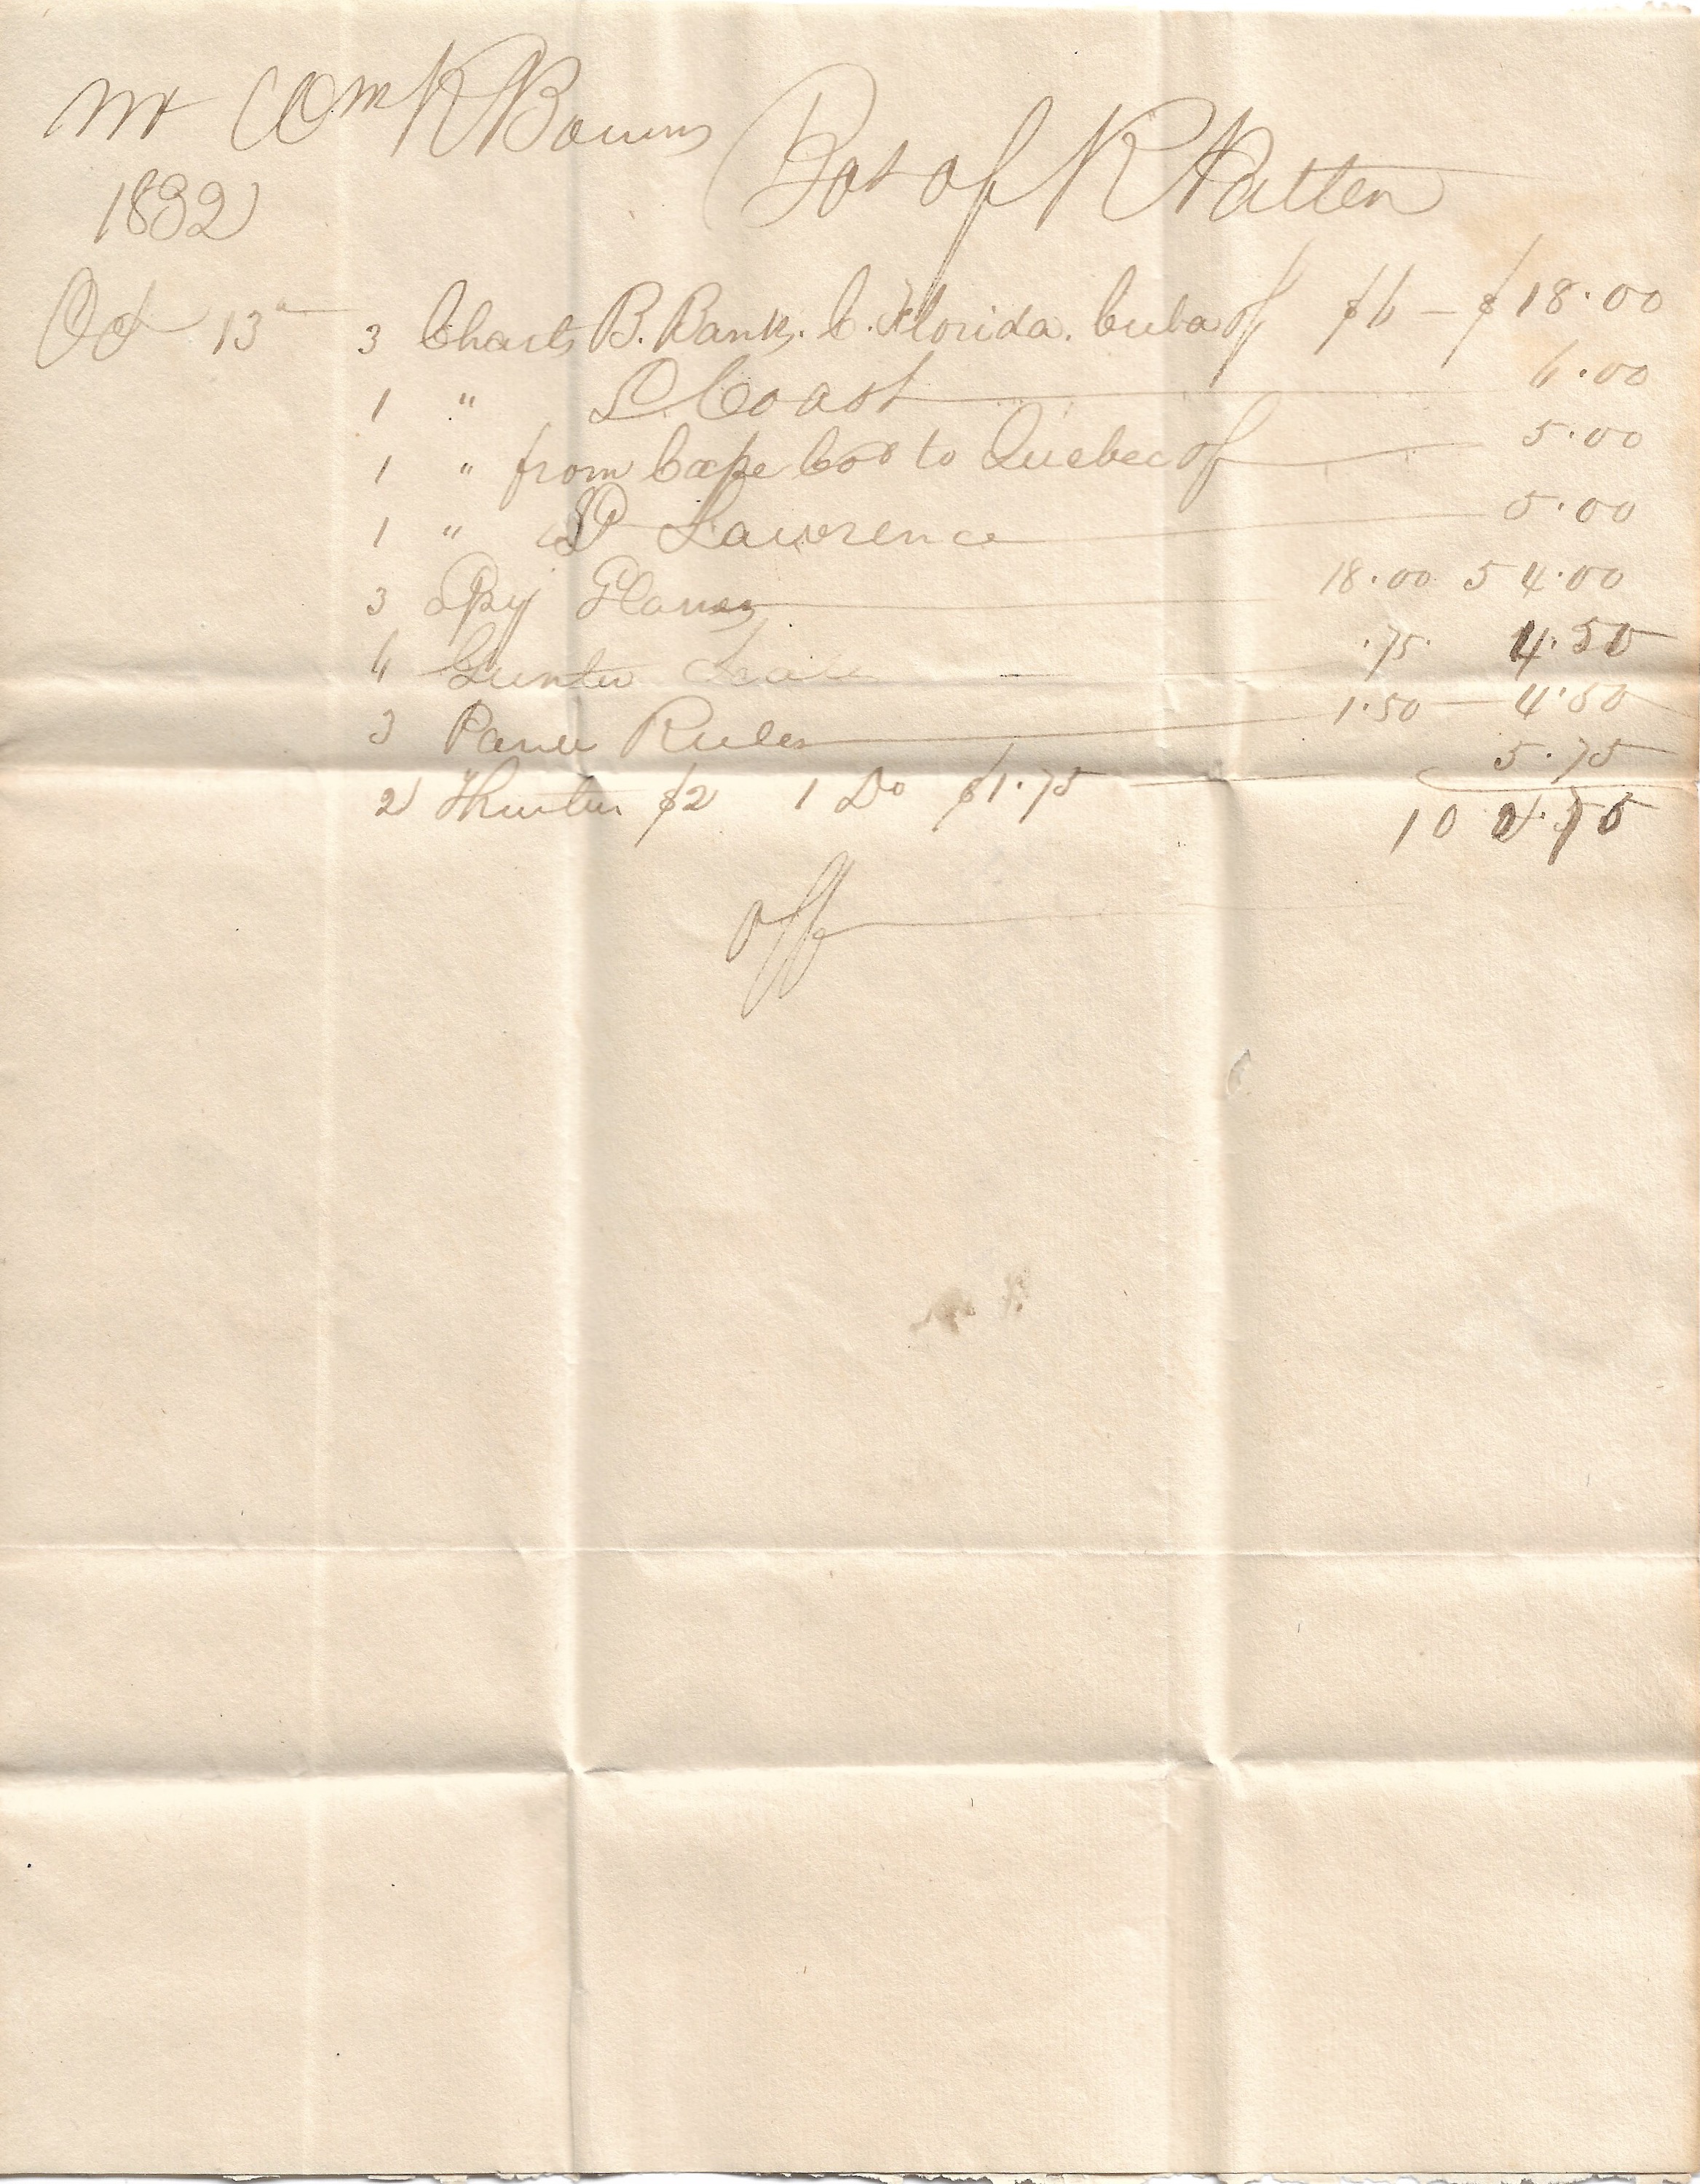 Mr Wm R Bowers
Bot of R Patten
1832
Oct 13th 3 Charts B. Bank. C. Florida. Cuba of $6 – $18.00
1 " S. Coast 6.00
1 " from Cape Cod to Quebec of 5.00
1 " St Lawrence 5.00
3 Spy Glasses 18.00 54.00
6 Gunter Scale .75. 4.50
3 Paral Rules 1.50 – 4.50
2 $2 1 Do $1.75 5.75
102.75
off